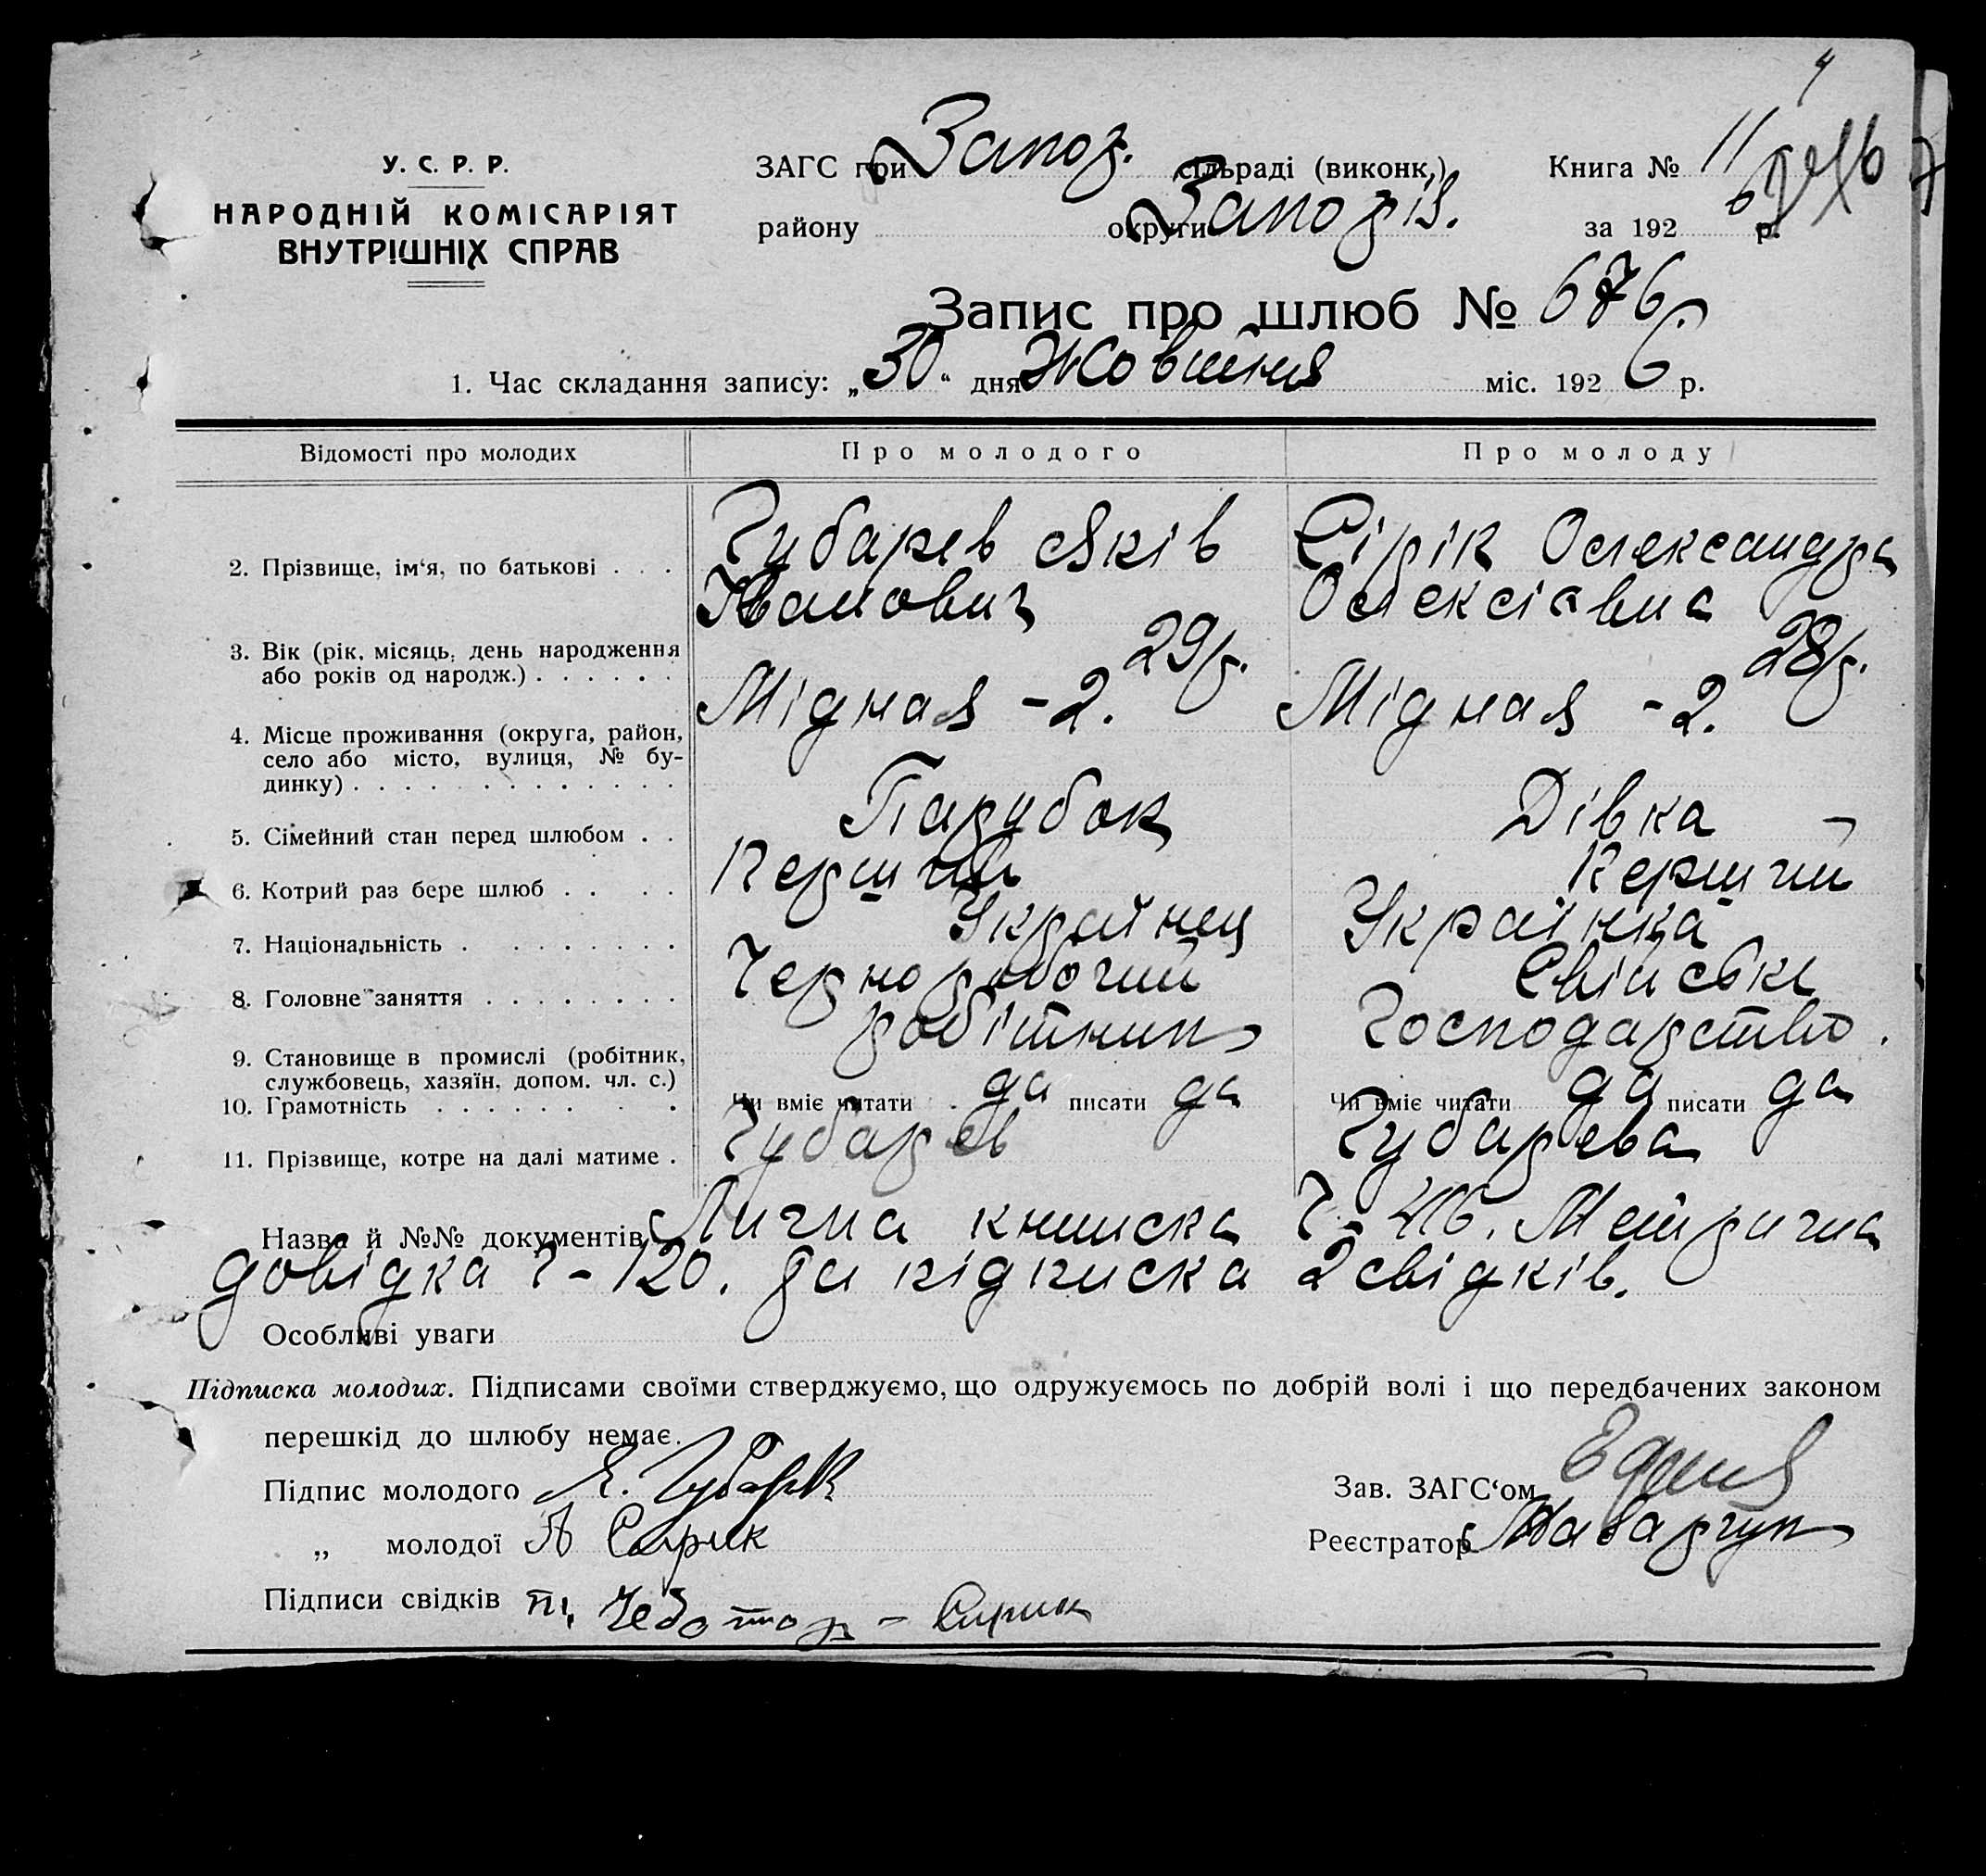 У. С. Р. Р.
НАРОДНІЙ КОМІСАРІЯТ
ВНУТРІШНІХ СПРАВ
ЗАГС при Запоз. сільраді (виконк.)
району округи Запозів.
Книга № 11
за 192 6 р.
Запис про шлюб № 676
1. Час складання запису: „30“ дня Жовтня міс. 192 6 р.
Відомості про молодих Про молодого Про молоду
2. Прізвище, ім‘я, по батькові . . . Губарев Яків Сірік Олександра
Іванович Олексіавна
3. Вік (рік, місяць, день народження 29 р. 28 р.
або років од народж.) . . . . . .
4. Місце проживання (округа, район, Мідная - 2. Мідная - 2.
село або місто, вулиця, № бу-
динку) . . . . . . . . . . . . .
5. Сімейний стан перед шлюбом . . Парубок Дівка
6. Котрий раз бере шлюб . . . . Перший Перший
7. Національність . . . . . . . . Украйнец Українка
8. Головне заняття . . . . . . . . Чернорабочий Свійське
робітник Господарство.
9. Становище в промислі (робітник,
службовець, хазяїн, допом. чл. с.)
10. Грамотність . . . . . . . . Чи вміє читати да писати да Чи вміє читати да писати да
11. Прізвище, котре на далі матиме . Губарев Губарева
Назва й №№ документів Лична книжска Ч- 416. Метрична
довідка Ч- 120. да підписка 2 свідків.
Особливі уваги
Підписка молодих. Підписами своїми стверджуємо, що одружуємось по добрій волі і що передбачених законом
перешкід до шлюбу немає.
Підпис молодого Я. Губарев
„ молодої А Сирик
Підписи свідків Чеботар - Сирик
Зав. ЗАГС‘ом
Реєстратор